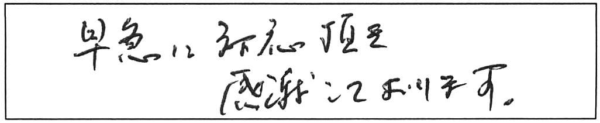 早急に対応頂き
感謝しております。